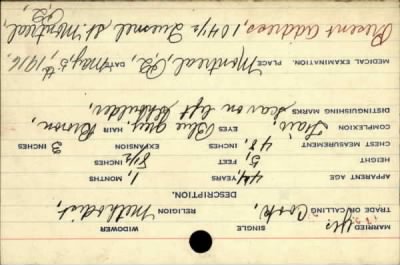 MARRIED Yes. SINGLE WIDOWER
TRADE OR CALLING Cook, RELIGION Methodist,
DESCRIPTION.
APPARENT AGE 44, YEARS, 1, MONTHS
HEIGHT 5, FEET 8½ INCHES
CHEST MEASUREMENT 48, INCHES EXPANSION 3 INCHES
COMPLEXION Fair, EYES Blue grey, HAIR Brown,
DISTINGUISHING MARKS Scar on left shoulder,
MEDICAL EXAMINATION. PLACE Montreal, P.Q., DATE May, 5th, 1916.
Present address, 104½ Quesnel St. Montreal, P.Q.,